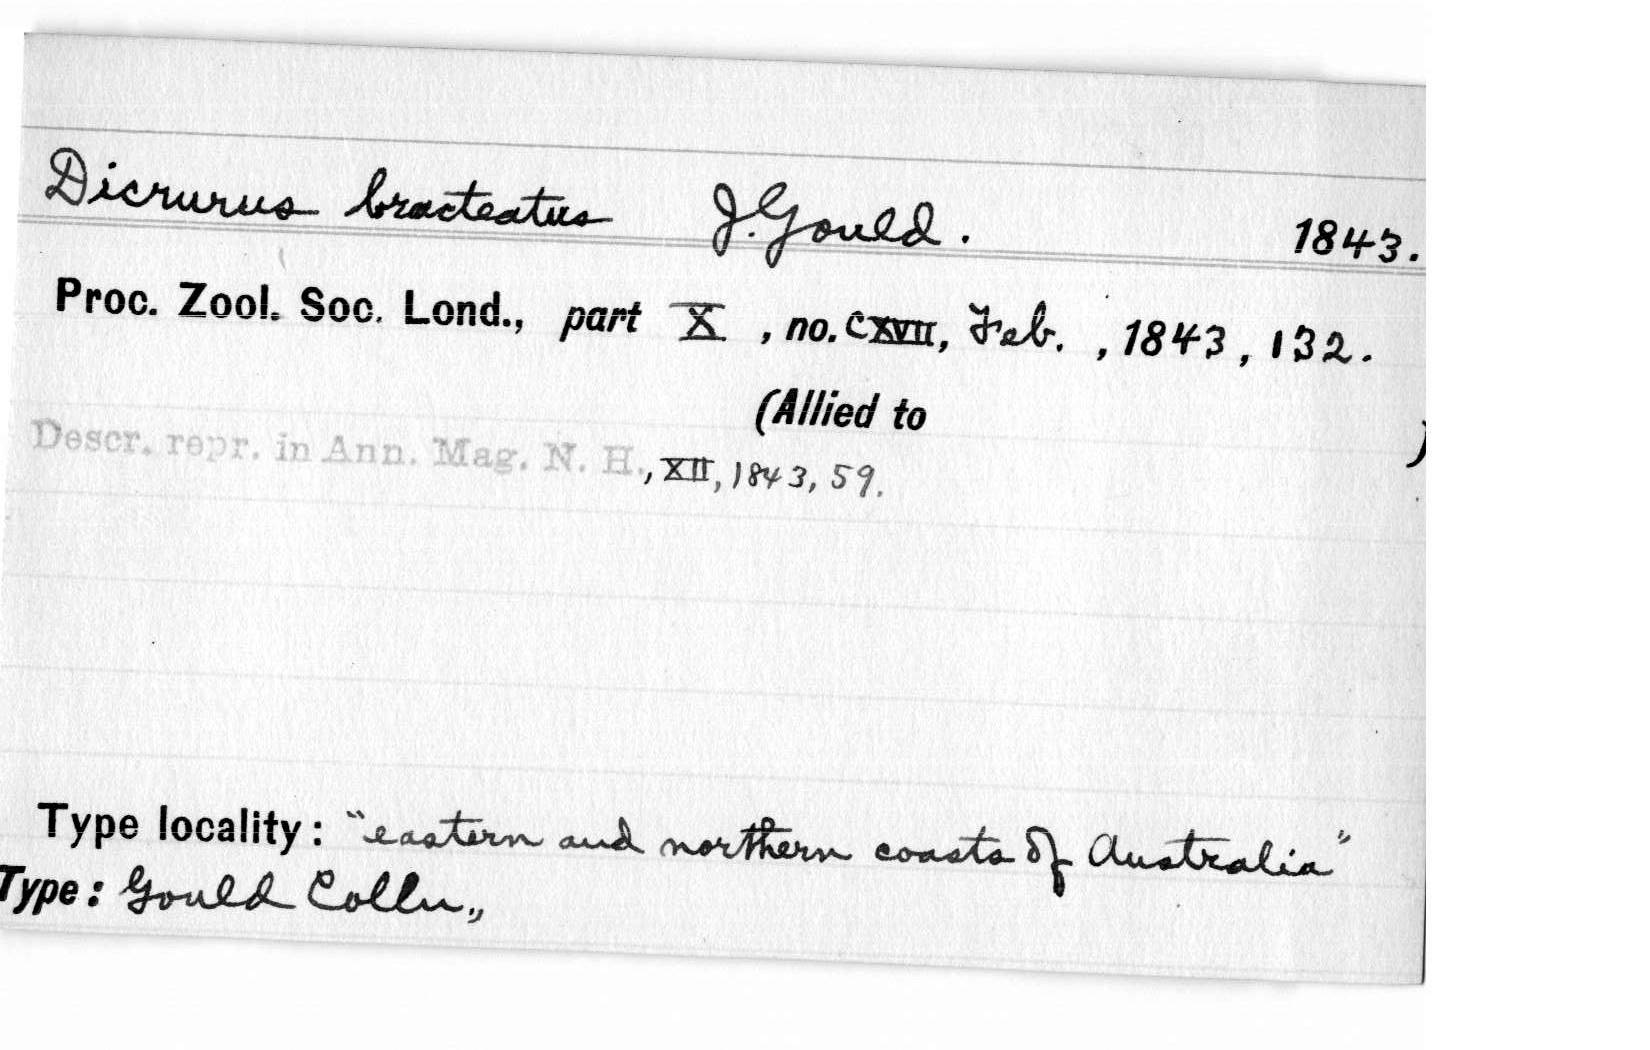 Dicrurus bracteatus J. Gould. 1843.
Proc. Zool. Soc. Lond., part X, no. CXVII, Feb., 1843, 132.
(Allied to )
Descr. repr. in Ann. Mag. N. H., XII, 1843, 59.
Type locality: "eastern and northern coasts of Australia"
Type: Gould Colln.,